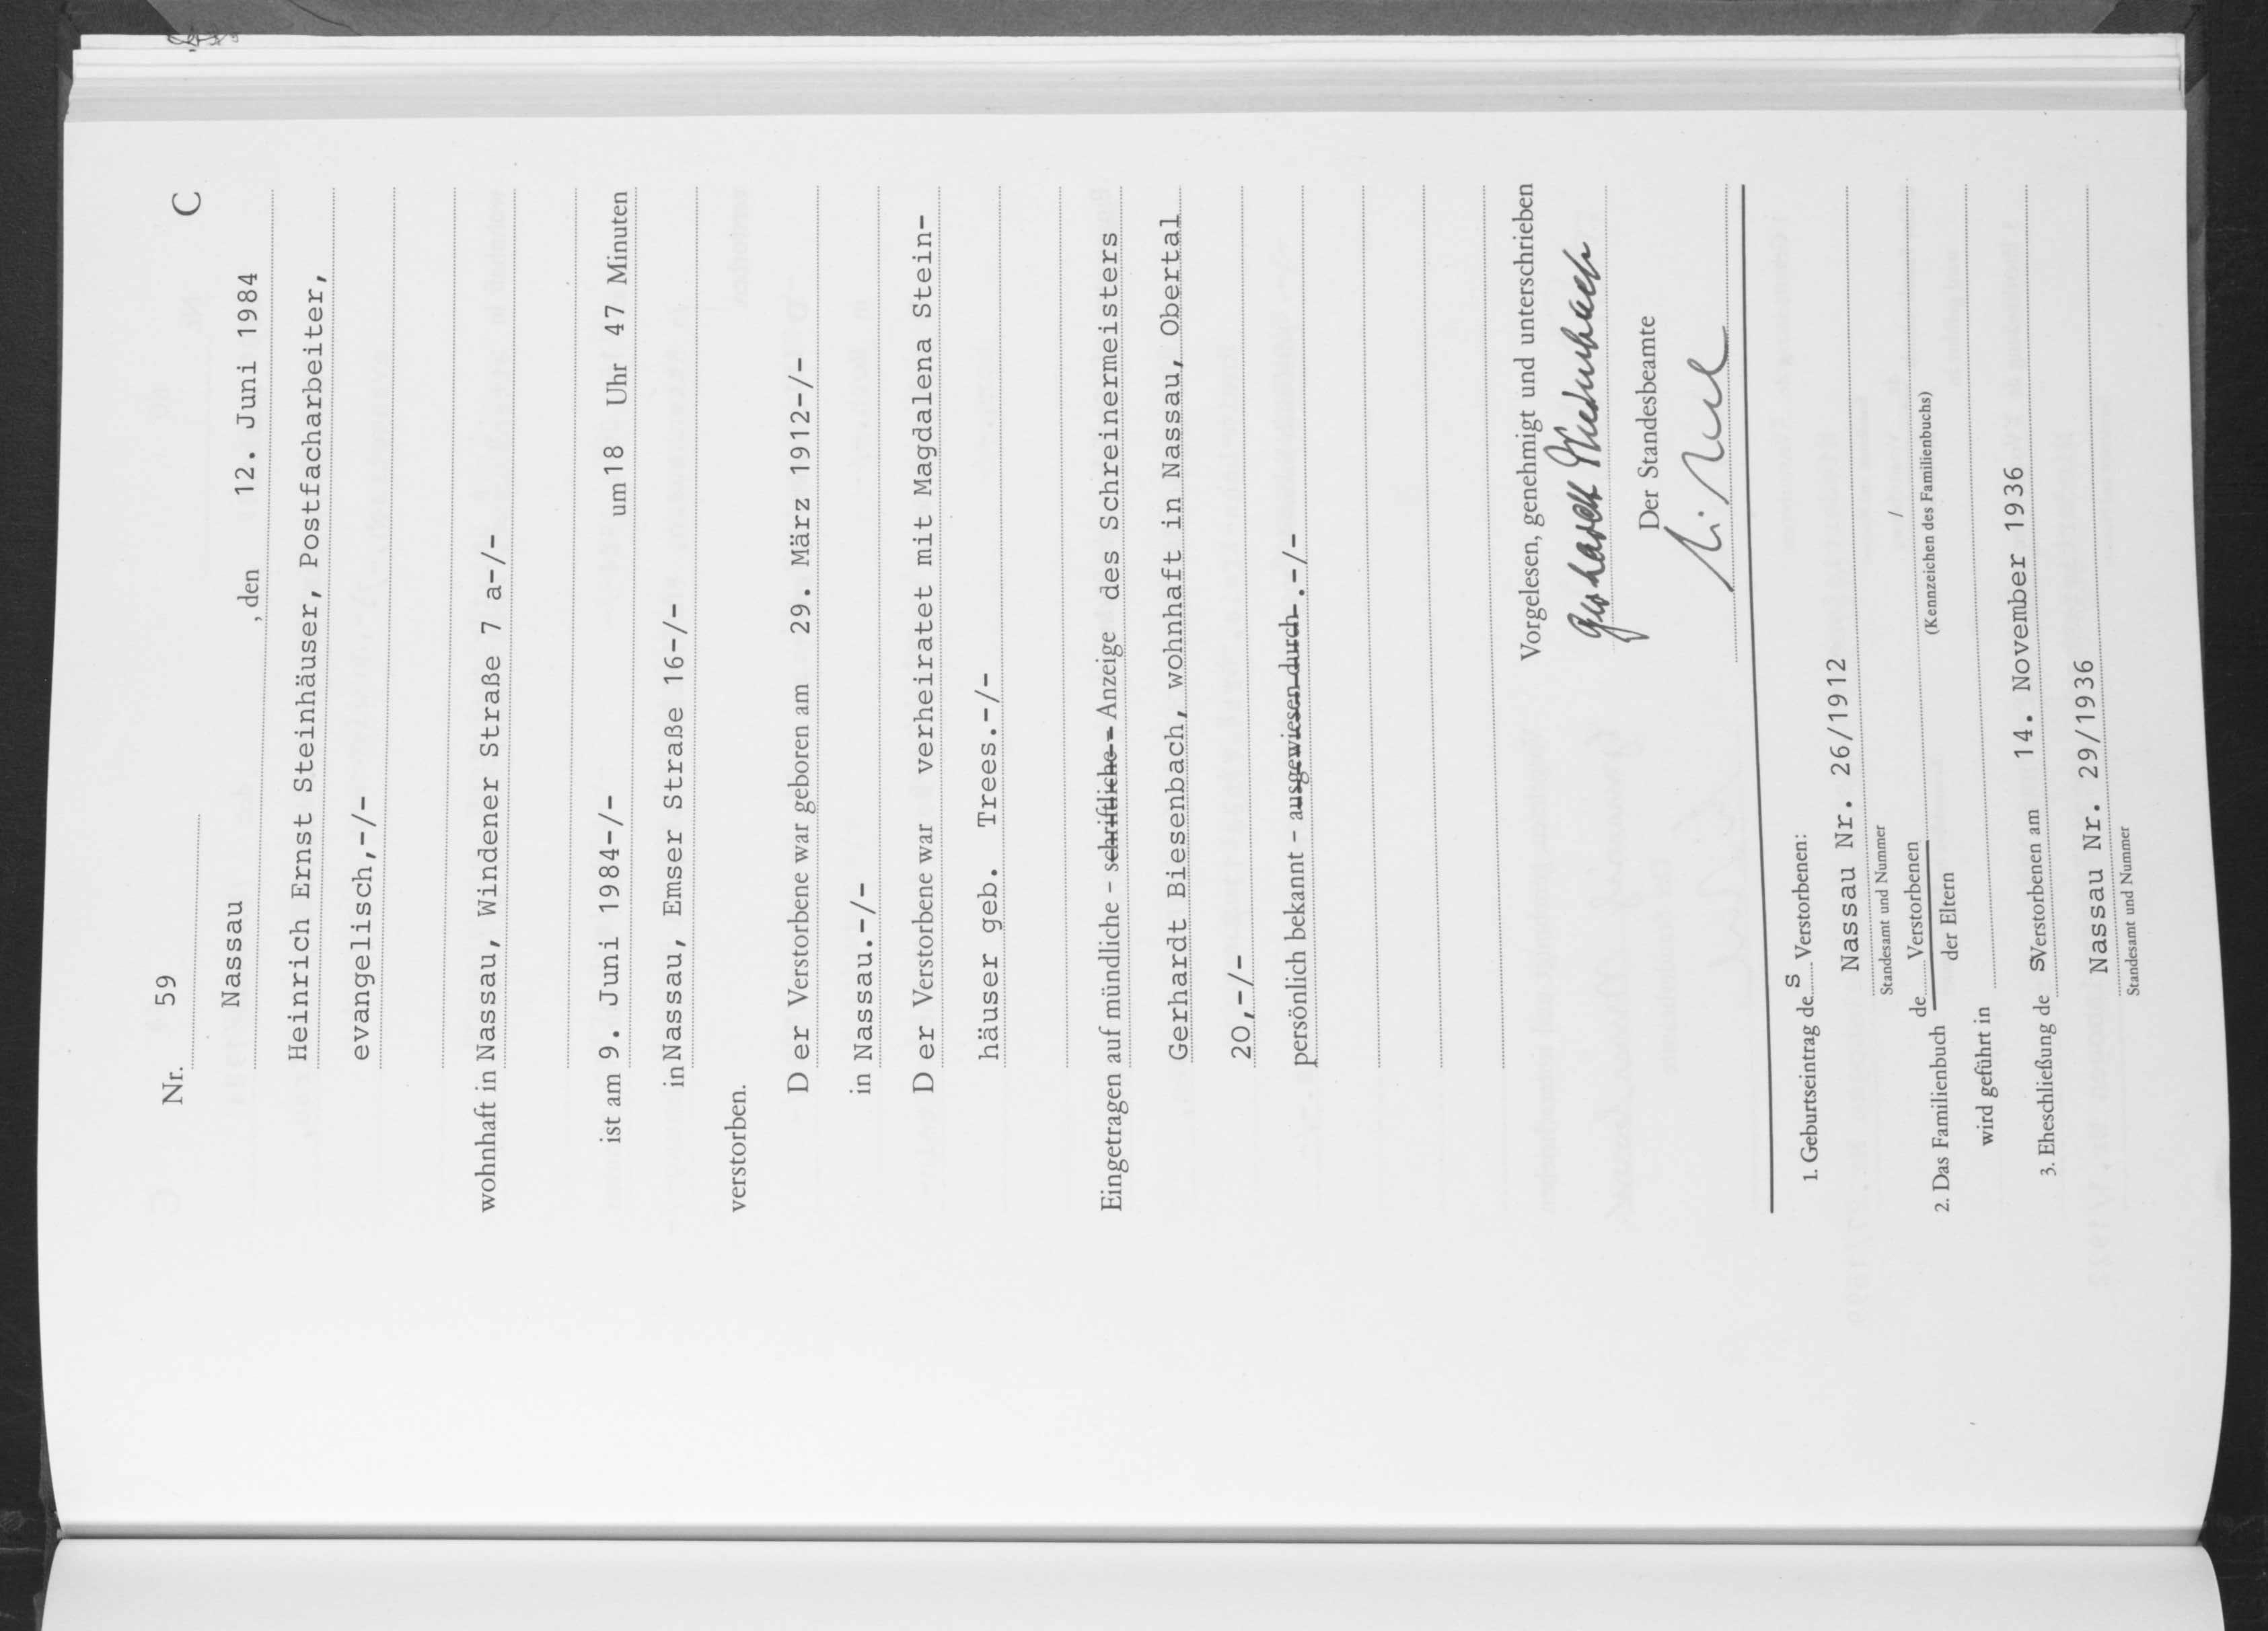 Nr. 59 C
Nassau, den 12. Juni 1984
Heinrich Ernst Steinhäuser, Postfacharbeiter,
evangelisch,-/-
wohnhaft in Nassau, Windener Straße 7 a-/-
ist am 9. Juni 1984-/- um 18 Uhr 47 Minuten
in Nassau, Emser Straße 16-/-
verstorben.
D er Verstorbene war geboren am 29. März 1912-/-
in Nassau.-/-
D er Verstorbene war verheiratet mit Magdalena Stein-
häuser geb. Trees.-/-
Eingetragen auf mündliche - schriftliche - Anzeige des Schreinermeisters
Gerhardt Biesenbach, wohnhaft in Nassau, Obertal
20,-/-
persönlich bekannt - ausgewiesen durch .-/-
Vorgelesen, genehmigt und unterschrieben
Der Standesbeamte
1. Geburtseintrag des Verstorbenen:
Nassau Nr. 26/1912
Standesamt und Nummer
2. Das Familienbuch de Verstorbenen /
der Eltern (Kennzeichen des Familienbuchs)
wird geführt in
3. Eheschließung de sVerstorbenen am 14. November 1936
Nassau Nr. 29/1936
Standesamt und Nummer